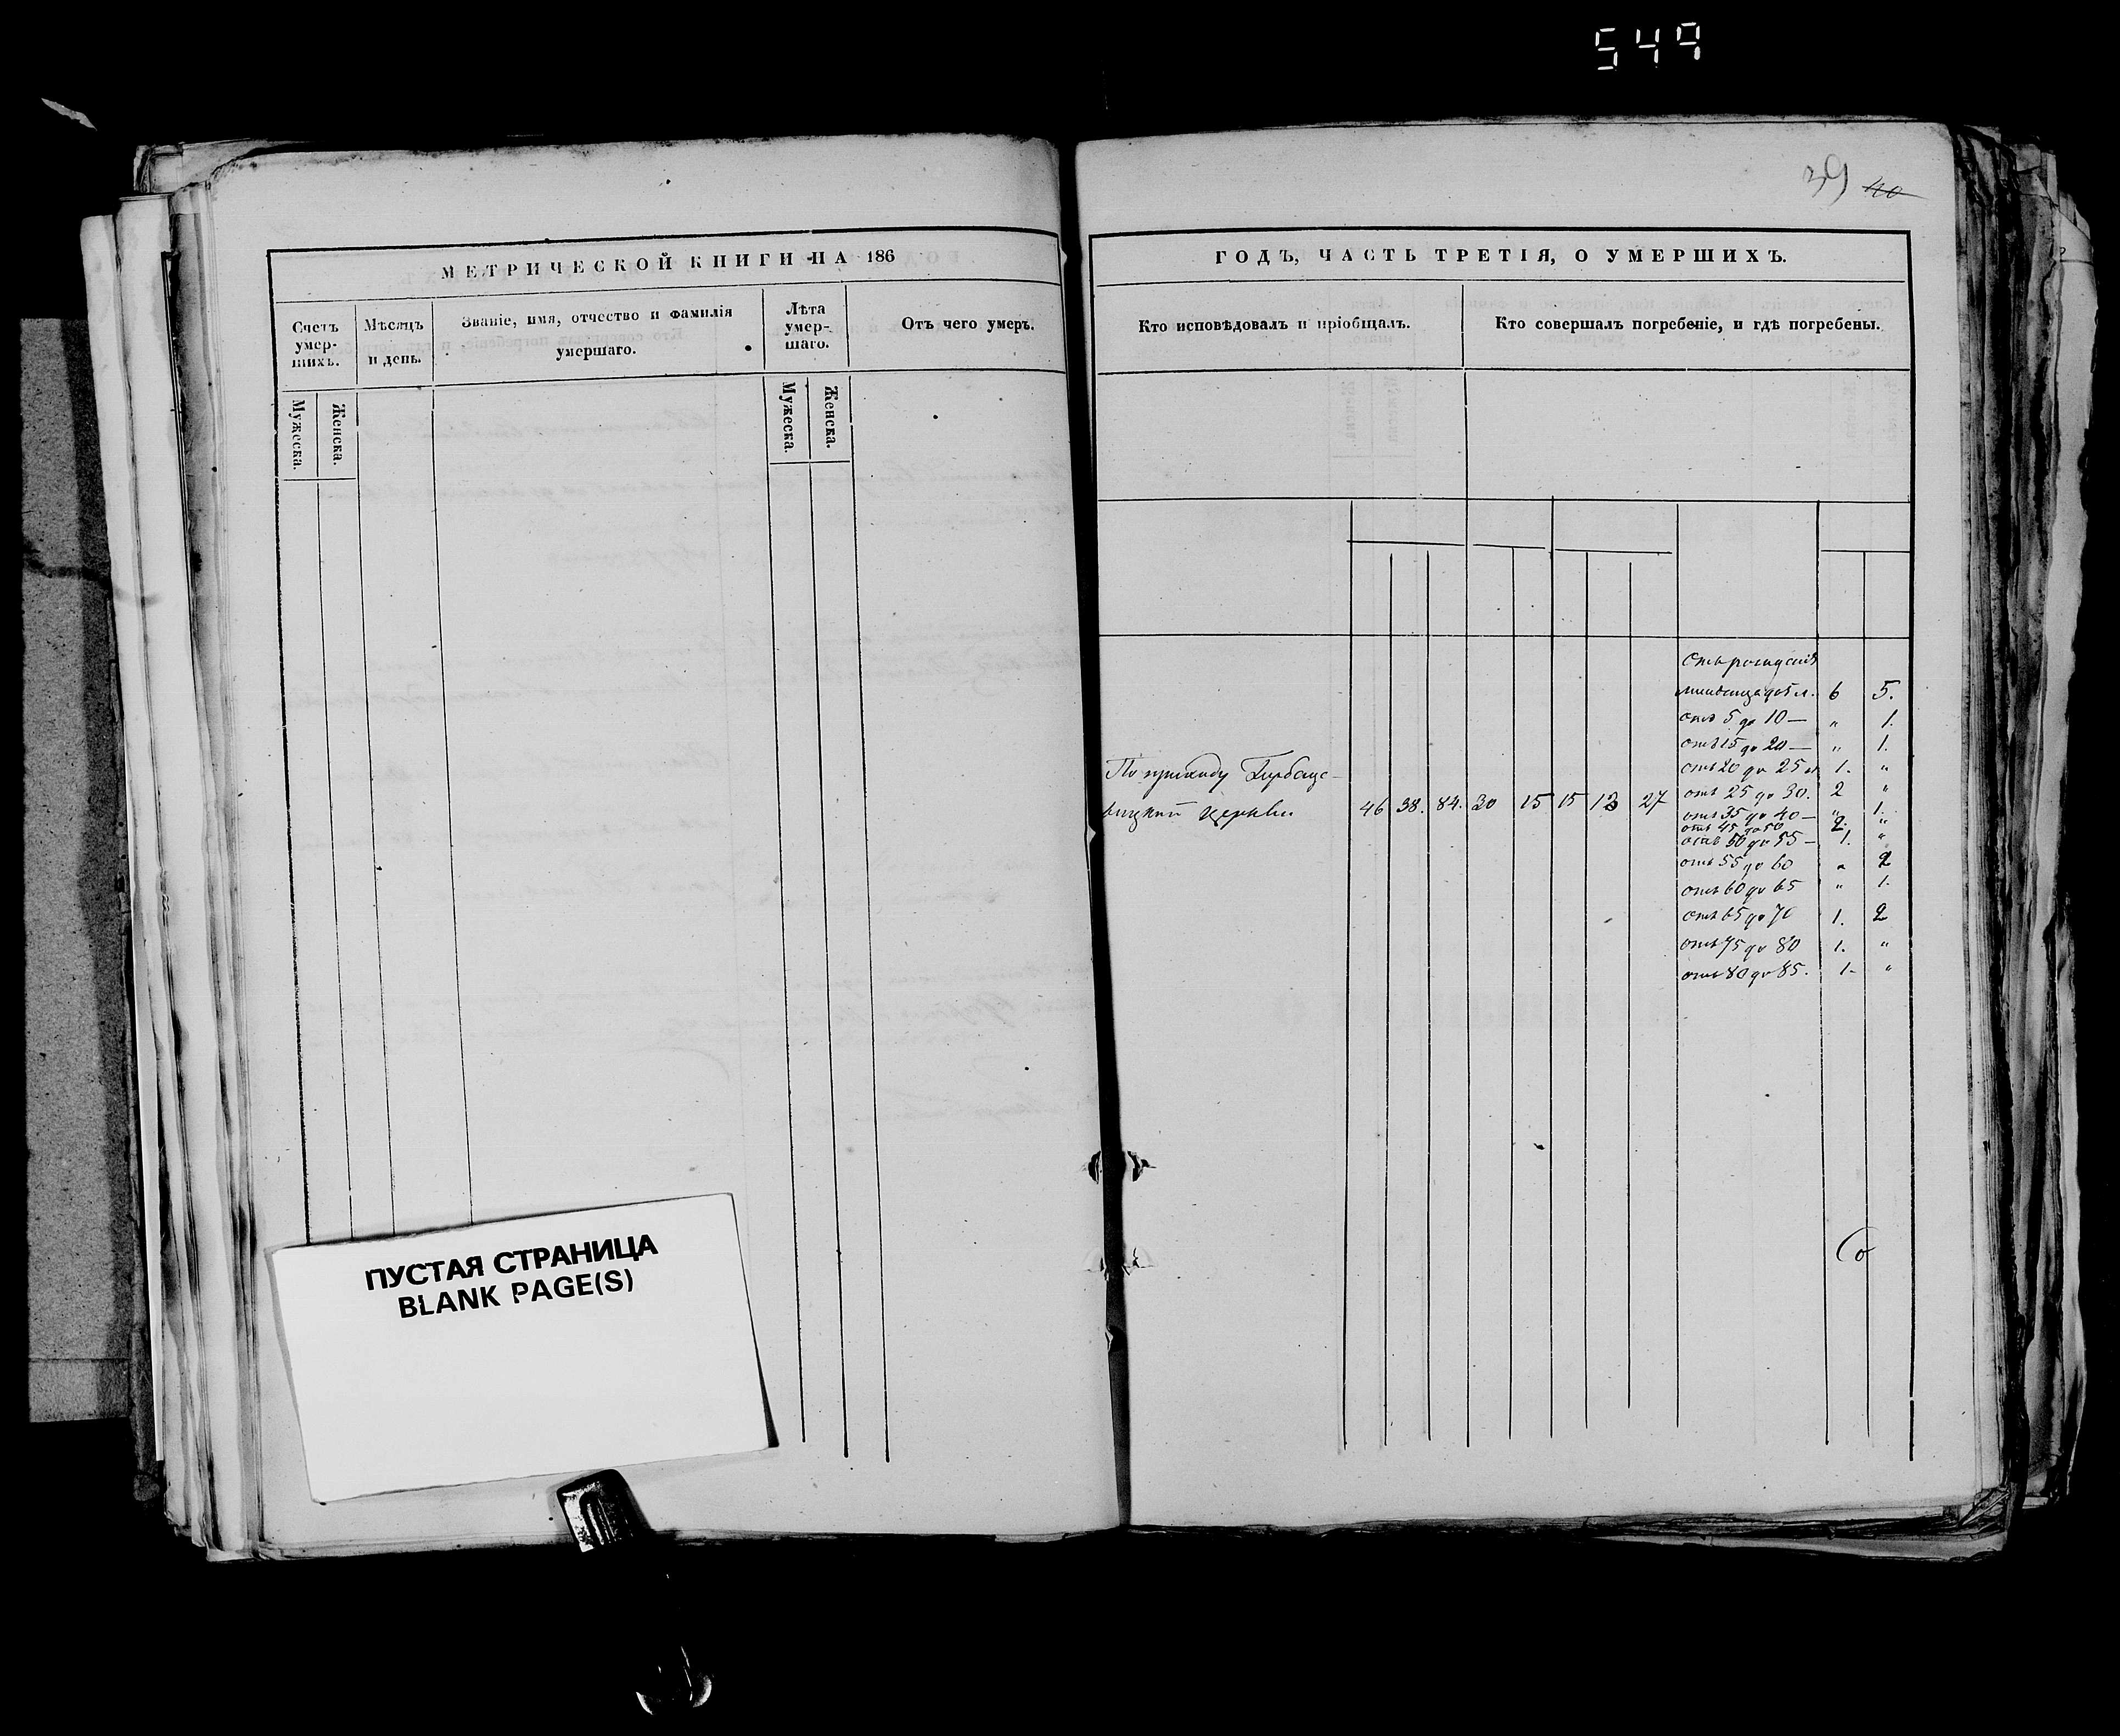 549
39 40
МЕТРИЧЕСКОЙ КНИГИ НА 186
Счетъ умер-шихъ.
Мѣсяцъ и день.
Званіе, имя, отчество и фамилія умершаго.
Лѣта умер-шаго.
Отъ чего умеръ.
Мужеска.
Женска.
Мужеска.
Женска.
ПУСТАЯ СТРАНИЦА
BLANK PAGE(S)
ГОДЪ, ЧАСТЬ ТРЕТІЯ, О УМЕРШИХЪ.
Кто исповѣдовалъ и пріобщалъ.
Кто совершалъ погребеніе, и гдѣ погребены.
По приходу
церкви 46 38. 84. 30 15 15 27
отъ рожденія
до 5 л. 6 5.
отъ 5 до 10 — " 1.
отъ 15 до 20 — " 1.
отъ 20 до 25 1. "
отъ 25 до 30. 2 "
отъ 35 до 40 — " 1.
отъ 45 до 50 2. "
отъ 50 до 55 — 1. "
отъ 55 до 60 " 2
отъ 60 до 65 " 1.
отъ 65 до 70 1. 2
отъ 75 до 80 1. "
отъ 80 до 85. 1. "